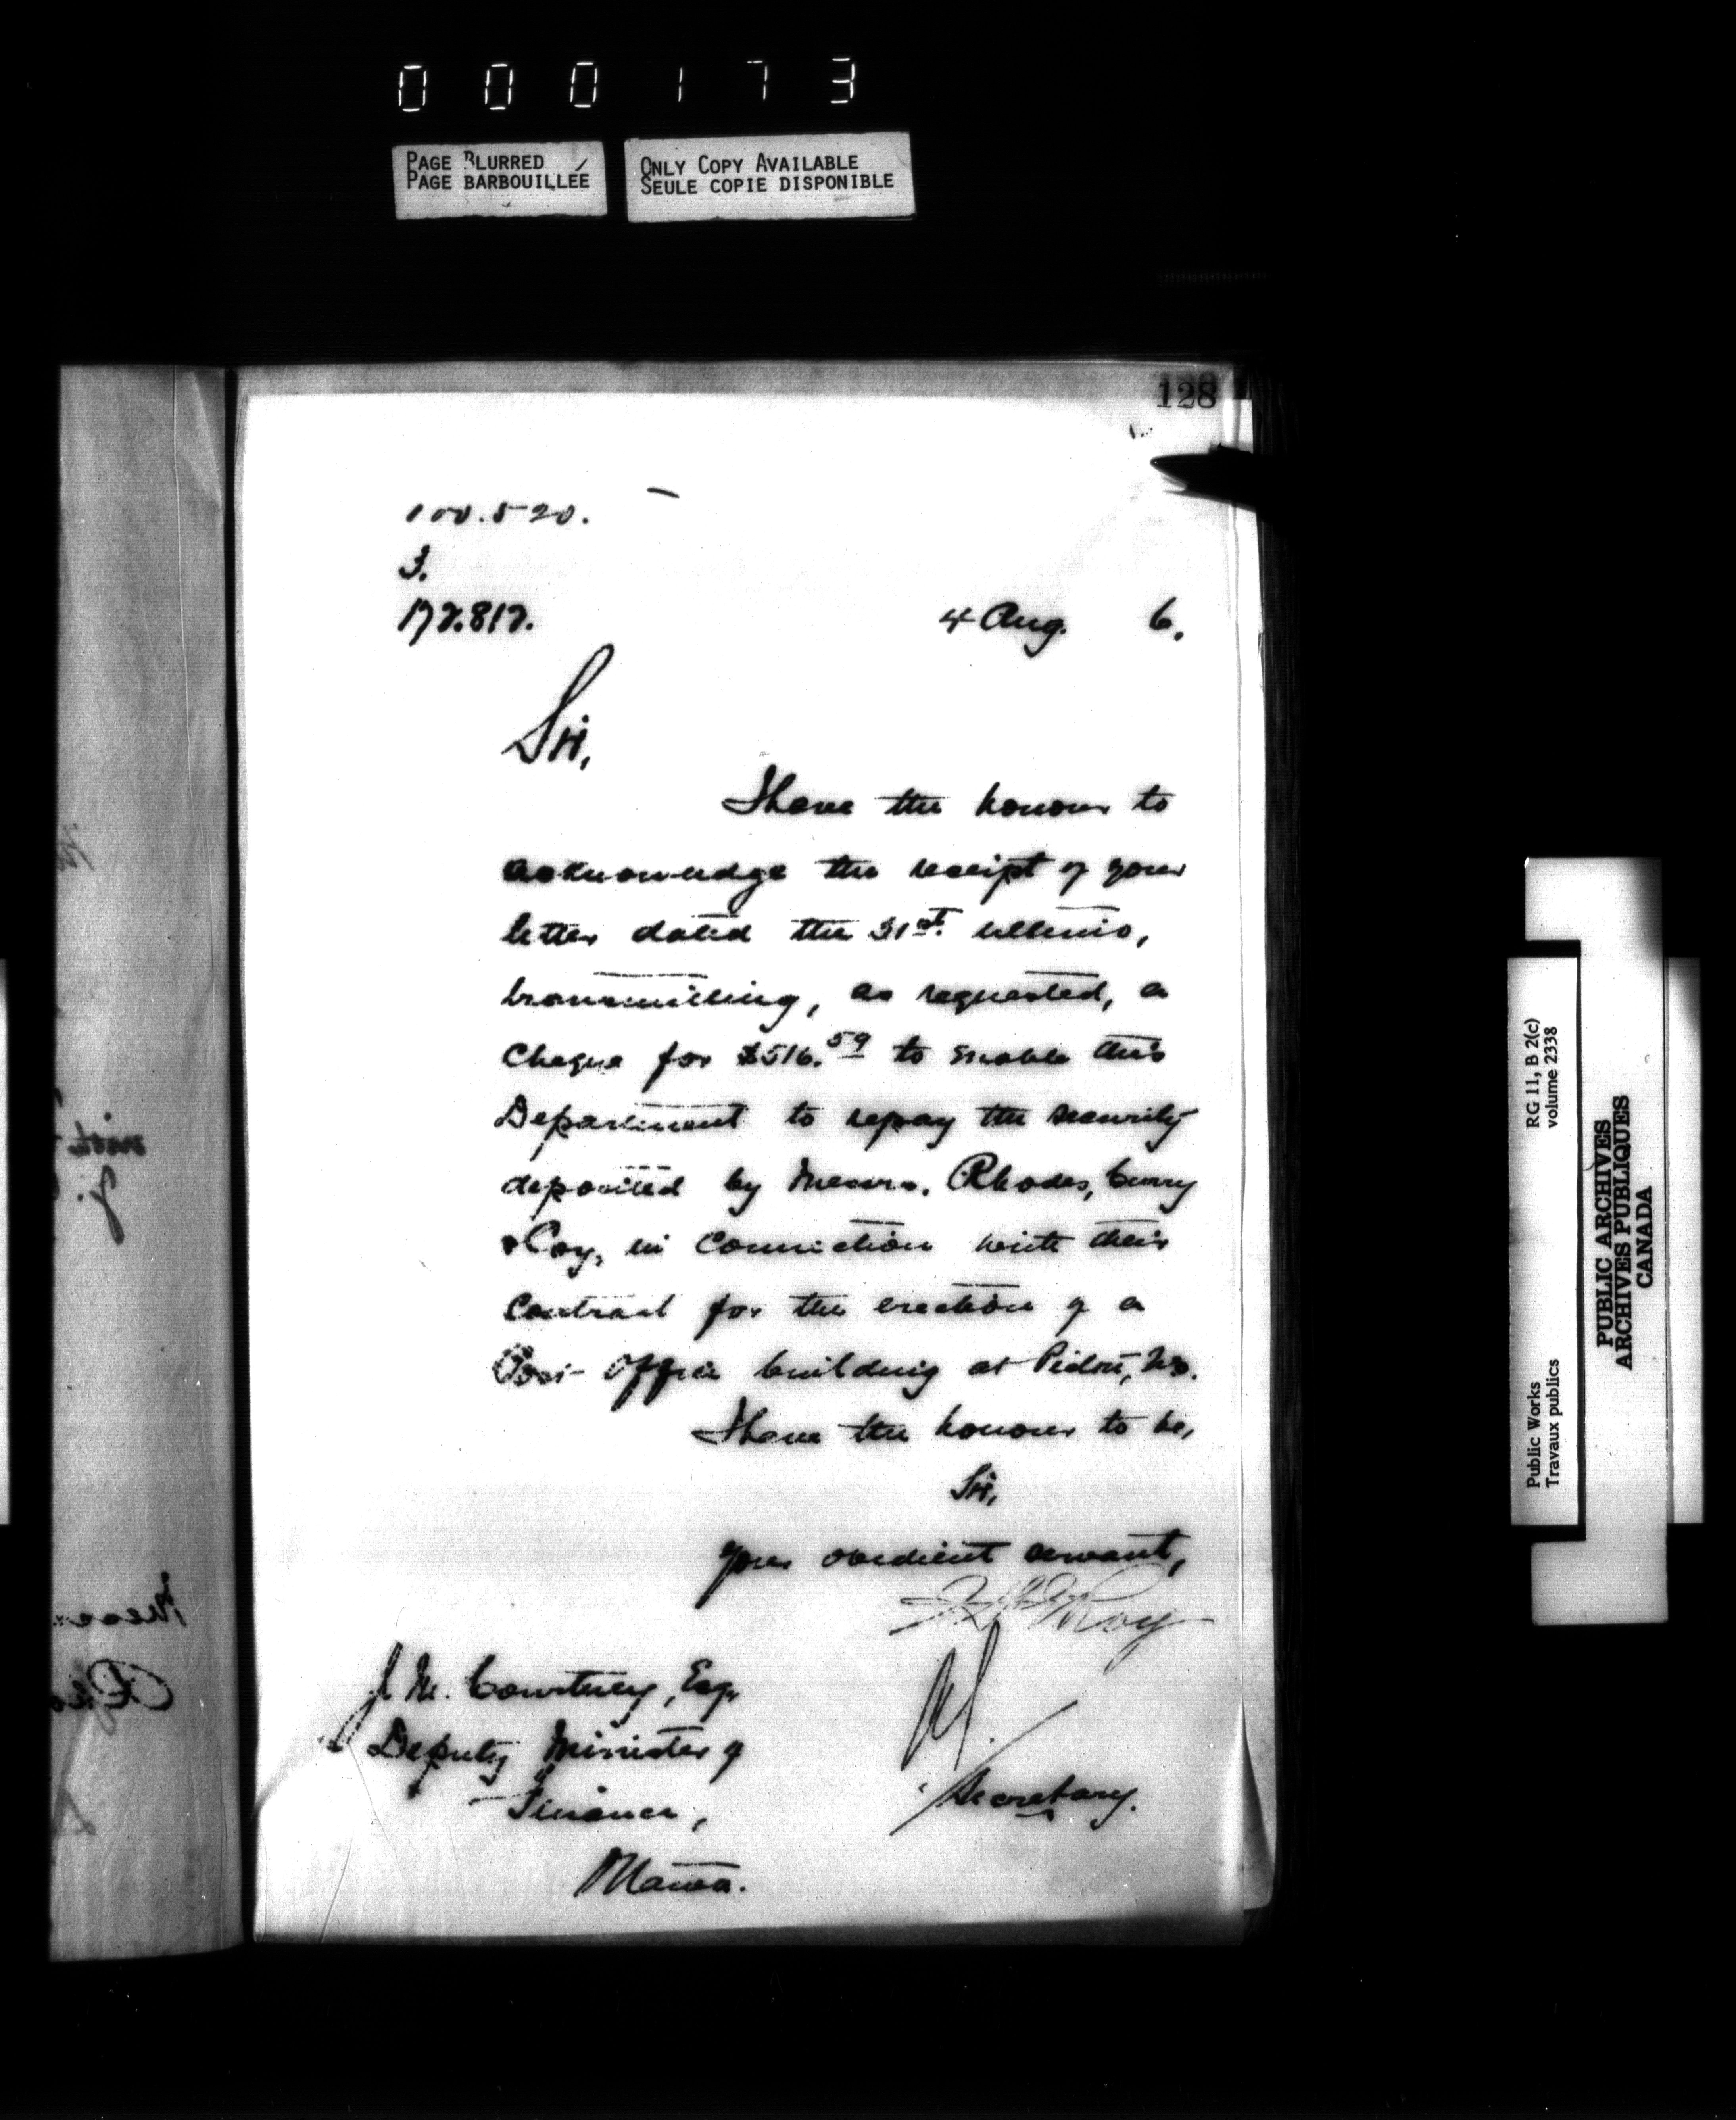 000173
PAGE BLURRED
PAGE BARBOUILLÉE
ONLY COPY AVAILABLE
SEULE COPIE DISPONIBLE
128
100.520.
3.
172.812.
4 Aug. 6.
Sir,
I have the honour to
acknowledge the receipt of your
letter dated the 31st. ultimo,
transmitting, as requested, a
cheque for $516.59 to enable this
Department to repay the security
deposited by Messrs. Rhodes, Curry
& Coy, in connection with their
contract for the erection of a
Post Office building at Pictou, N.S.
I have the honour to be,
Sir,
Your obedient servant,
Roy
Secretary.
J. M. Courtney, Esq,
Deputy Minister of
Finance,
Ottawa.
RG 11, B 2(c)
volume 2338
Public Works
Travaux publics
PUBLIC ARCHIVES
ARCHIVES PUBLIQUES
CANADA